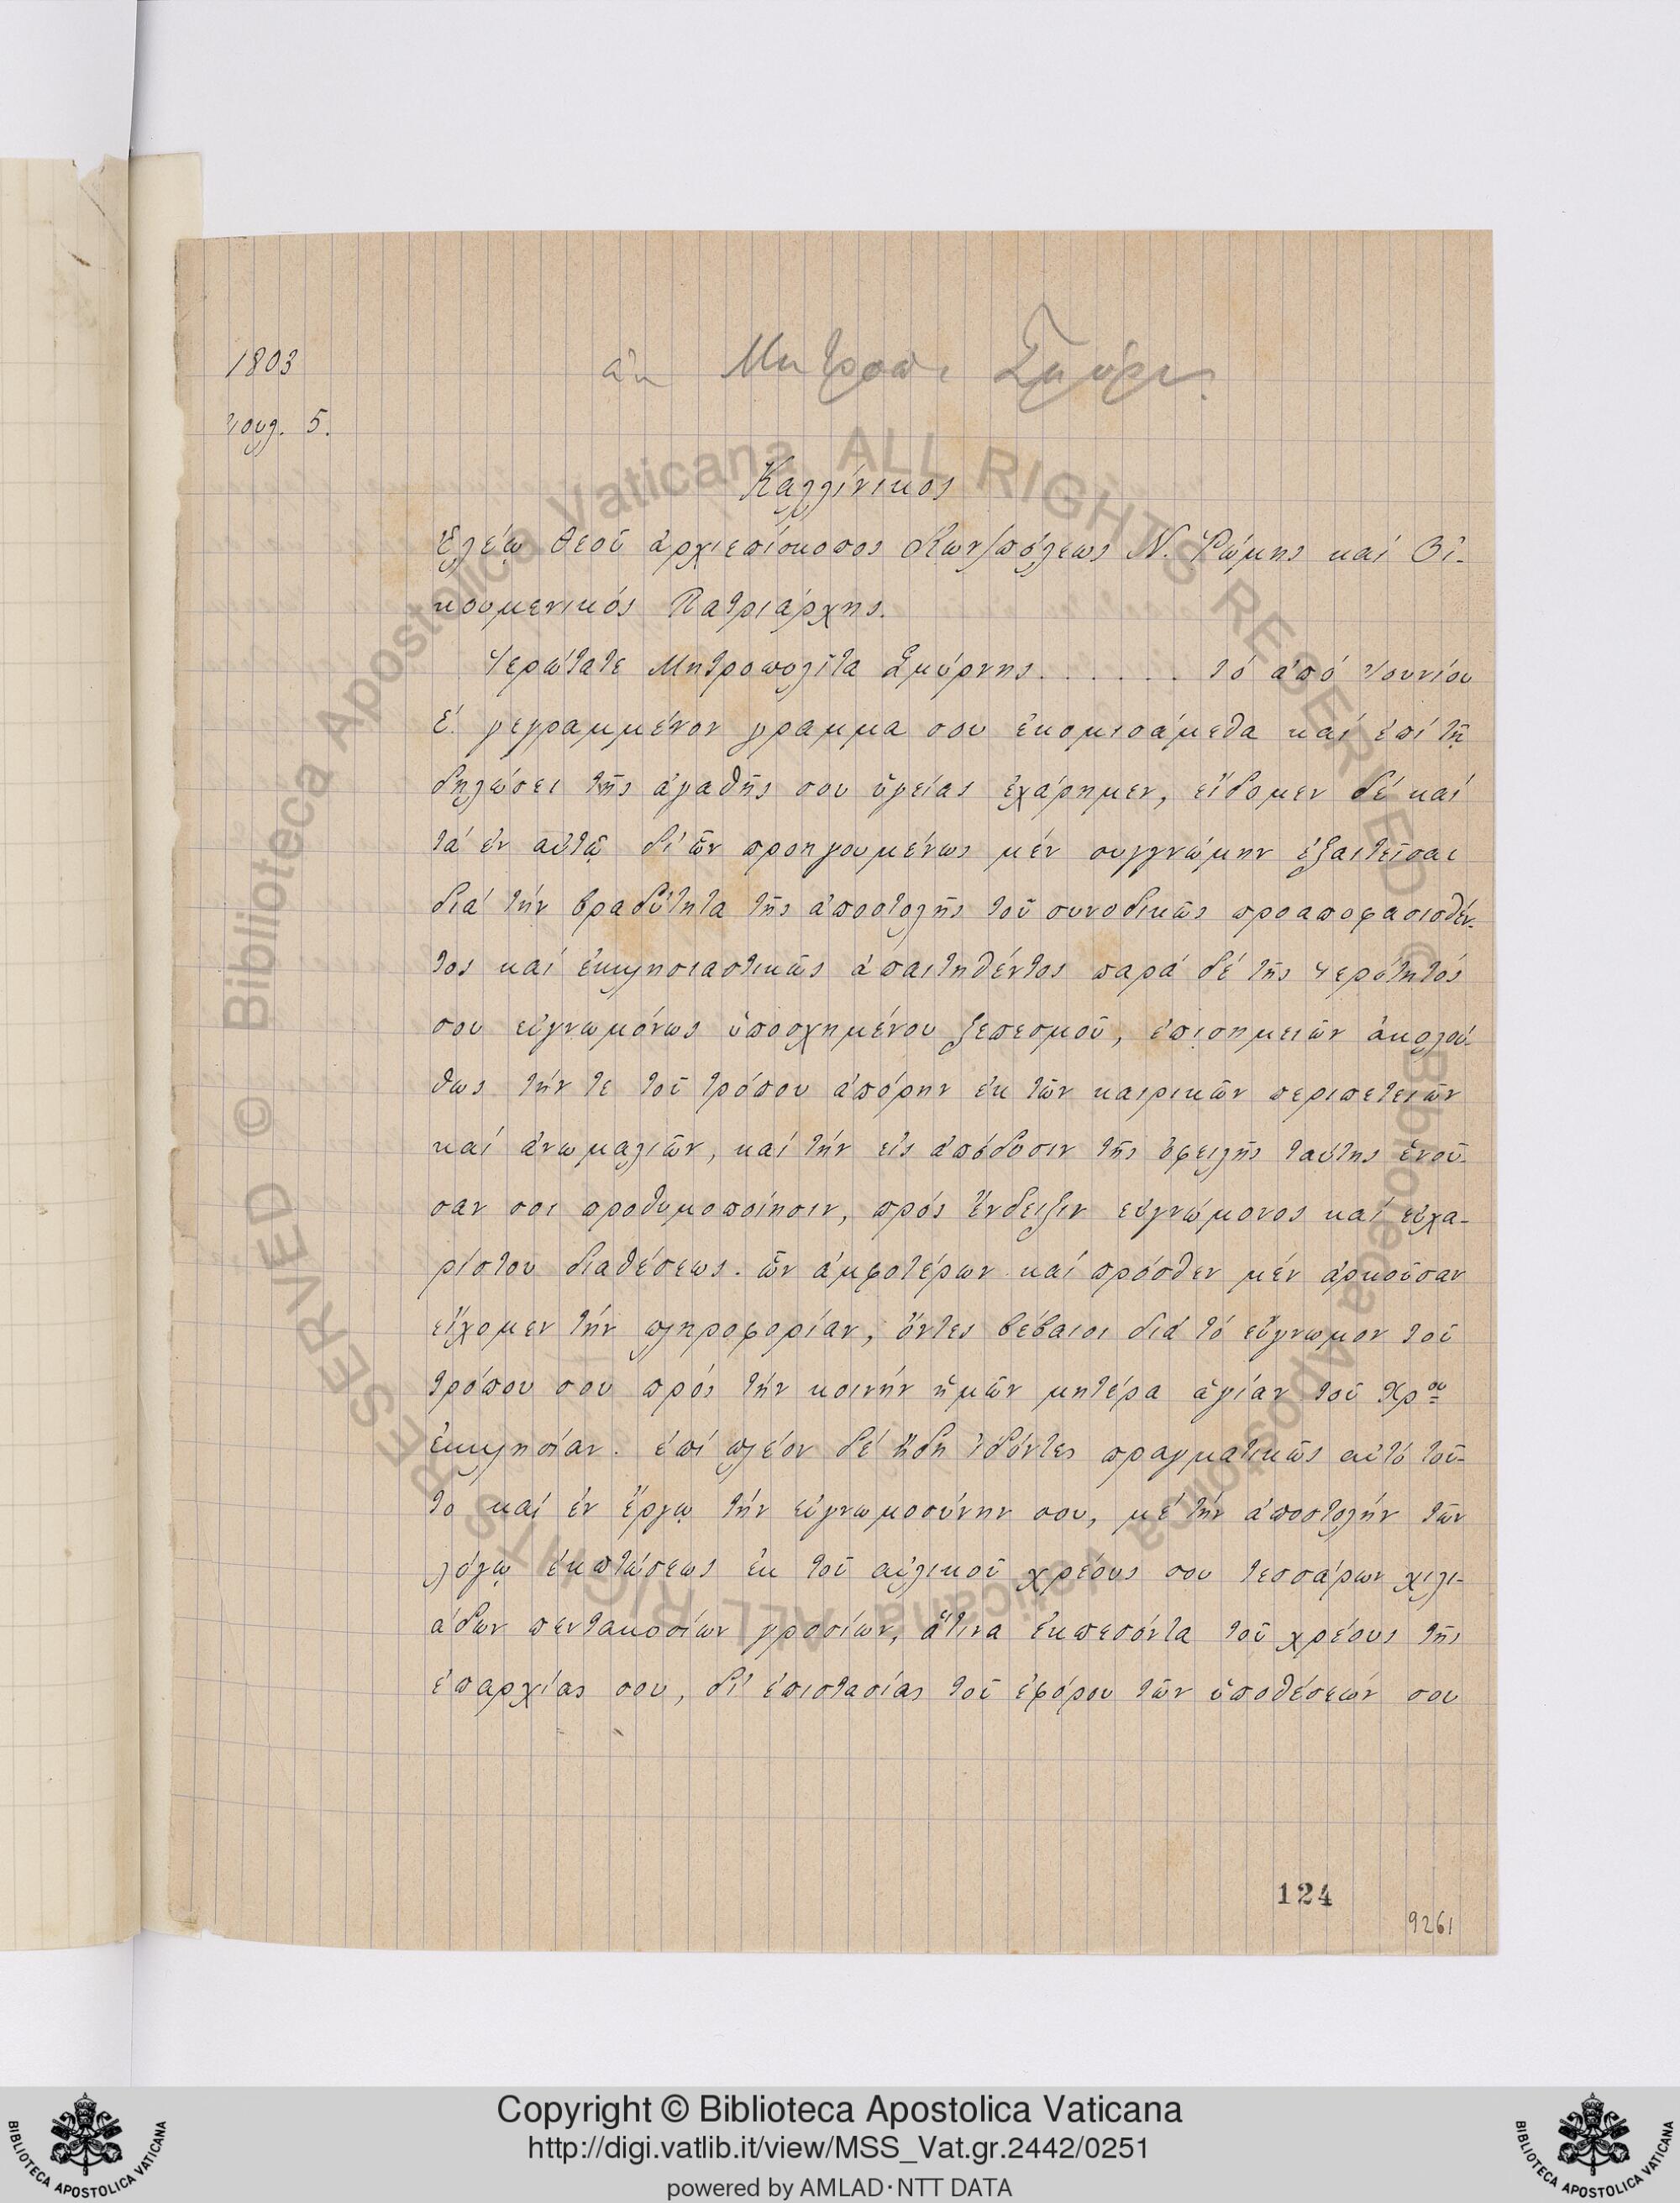 1803
Ἰουλ. 5.
Μητροπ. Σμύρν.
Καλλίνικος
Ἐλέῳ θεοῦ ἀρχιεπίσκοπος Κων/πόλεως Ν. Ῥώμης καί Οἰ-
κουμενικός Πατριάρχης.
Ἱερώτατε Μητροπολῖτα Σμύρνης . . . . . . τό ἀπό Ἰουνίου
ε΄. γεγραμμένον γραμμα σου ἐκομισάμεθα καί ἐπί τῇ
δηλώσει τῆς ἀγαθῆς σου ὑγείας ἐχάρημεν, εἴδομεν δέ καί
τά ἐν αὐτῷ δι' ὧν προηγουμένως μέν συγγνώμην ἐξαιτεῖσαι
διά τήν βραδύτητα τῆς ἀποστολῆς τοῦ συνοδικῶς προαποφασισθέν-
τος καί ἐκκλησιαστικῶς ἀπαιτηθέντος παρά δέ τῆς ἱερότητός
σου εὐγνωμόνως ὑποσχημένου ξεπεσμοῦ, ἐπισημειῶν ἀκολού-
θως τήν τε τοῦ τρόπου ἀπόρην ἐκ τῶν καιρικῶν περιπετειῶν
καί ἀνωμαλιῶν, καί τήν εἰς ἀπόδοσιν τῆς ὀφειλῆς ταύτης ἐνοῦ-
σαν σοι προθυμοποίησιν, πρός ἔνδειξιν εὐγνώμονος καί εὐχα-
ρίστου διαθέσεως. ὧν ἀμφοτέρων καί πρόσθεν μέν ἀρκοῦσαν
εἴχομεν τήν πληροφορίαν, ὄντες βέβαιοι διά τό εὔγνωμον τοῦ
τρόπου σου πρός τήν κοινήν ἡμῶν μητέρα ἁγίαν τοῦ Χρου
ἐκκλησίαν. ἐπί πλέον δέ ἤδη ἰδόντες πραγματικῶς αὐτό τοῦ-
το καί ἐν ἔργῳ τήν εὐγνωμοσύνην σου, μέ τήν ἀποστολήν τῶν
λόγῳ ἐκπτώσεως ἐκ τοῦ αὐλικοῦ χρέους σου τεσσάρων χιλι-
άδων πεντακοσίων γροσίων, ἅτινα ἐκπεσόντα τοῦ χρέους τῆς
ἐπαρχίας σου, δι' ἐπιστασίας τοῦ ἐφόρου τῶν ὑποθέσεών σου
124
9261
© Biblioteca Apostolica Vaticana ALL RIGHTS RESERVED
© Biblioteca Apostolica Vaticana ALL RIGHTS RESERVED
Copyright © Biblioteca Apostolica Vaticana
http://digi.vatlib.it/view/MSS_Vat.gr.2442/0251
powered by AMLAD·NTT DATA
BIBLIOTECA APOSTOLICA VATICANA
BIBLIOTECA APOSTOLICA VATICANA